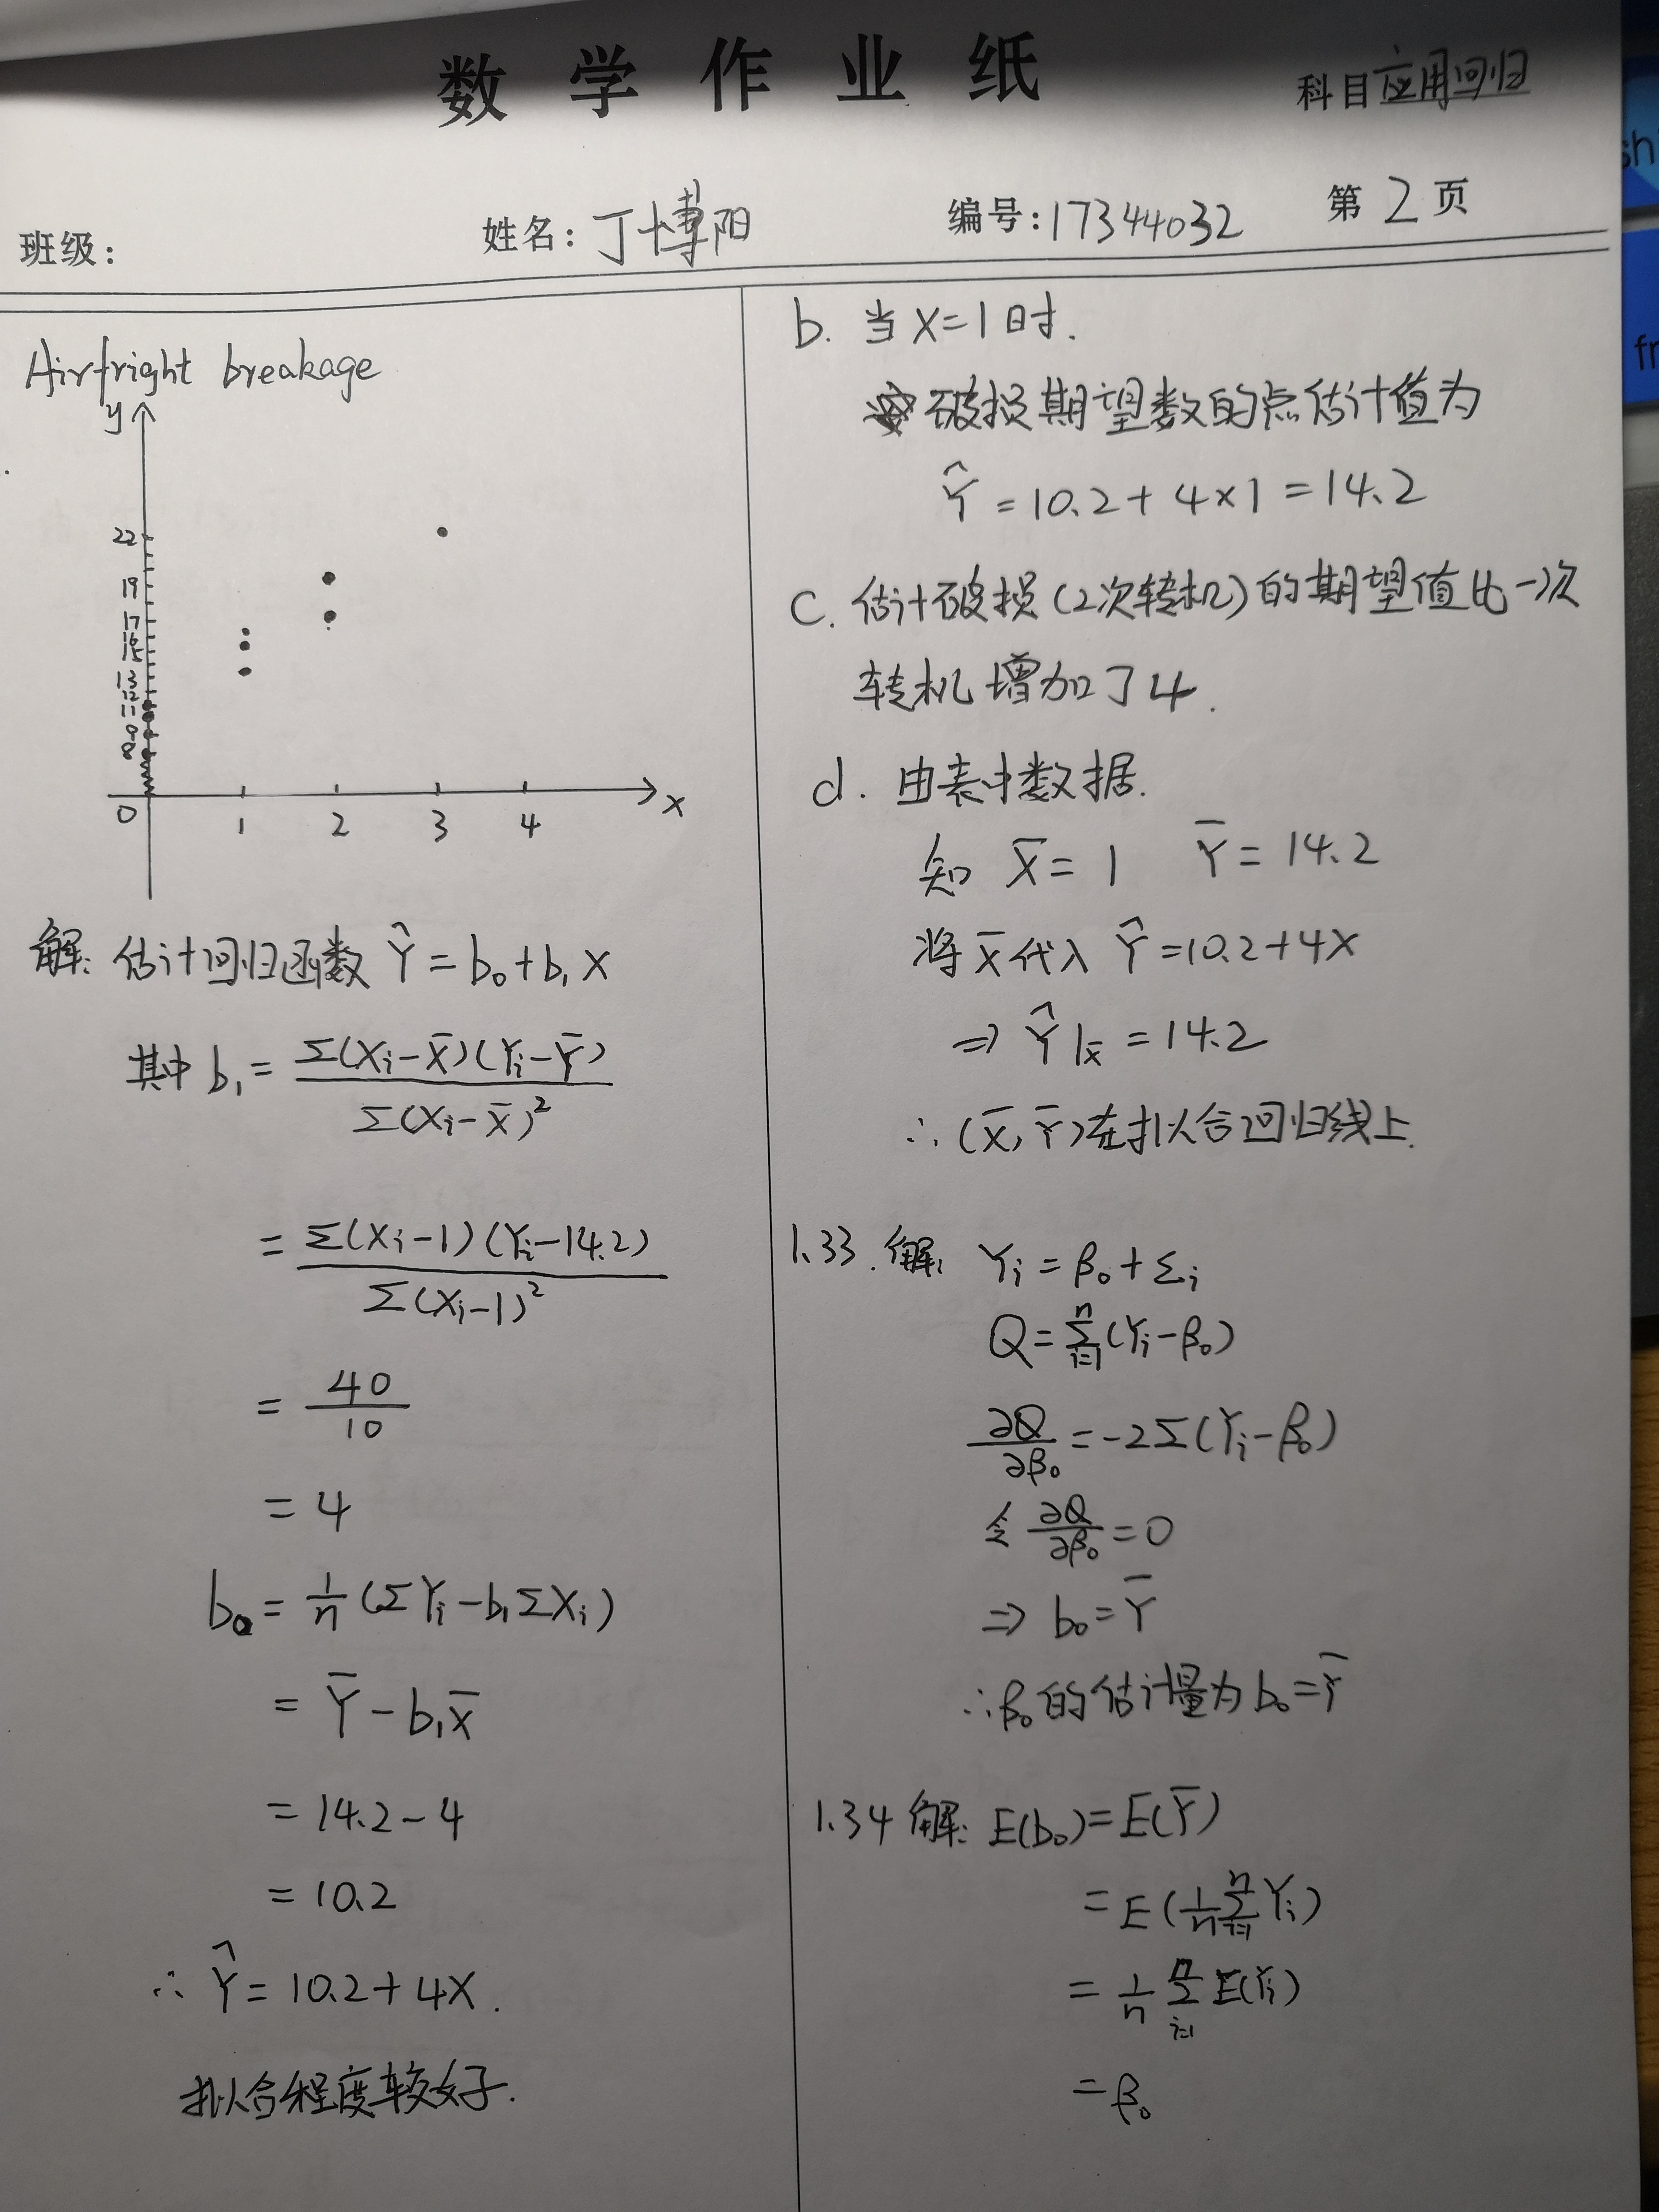 数学作业纸
科目 应用回归
班级:
姓名: 丁博阳
编号: 17344032
第 2 页
Airfright breakage
y
22
19
17
16
15
13
12
11
9
8
0 1 2 3 4 x
解: 估计回归函数 Ŷ = b₀ + b₁X
其中 b₁ = Σ(Xᵢ-X̄)(Yᵢ-Ȳ) / Σ(Xᵢ-X̄)²
= Σ(Xᵢ-1)(Yᵢ-14.2) / Σ(Xᵢ-1)²
= 40/10
= 4
b₀ = 1/n (ΣYᵢ - b₁ΣXᵢ)
= Ȳ - b₁X̄
= 14.2 - 4
= 10.2
∴ Ŷ = 10.2 + 4X.
拟合程度较好.
b. 当 X=1 时.
破损期望数的点估计值为
Ŷ = 10.2 + 4×1 = 14.2
c. 估计破损(2次转机)的期望值比一次
转机增加了4.
d. 由表中数据.
知 X̄ = 1 Ȳ = 14.2
将 X̄ 代入 Ŷ = 10.2 + 4X
⇒ Ŷ|x̄ = 14.2
∴ (X̄, Ȳ)在拟合回归线上.
1.33. 解: Yᵢ = β₀ + Σᵢ
Q = Σⁿᵢ₌₁ (Yᵢ - β₀)
∂Q/∂β₀ = -2Σ(Yᵢ - β₀)
令 ∂Q/∂β₀ = 0
⇒ b₀ = Ȳ
∴ β₀ 的估计量为 b₀ = Ȳ
1.34 解: E(b₀) = E(Ȳ)
= E(1/n Σⁿᵢ₌₁ Yᵢ)
= 1/n Σⁿᵢ₌₁ E(Yᵢ)
= β₀